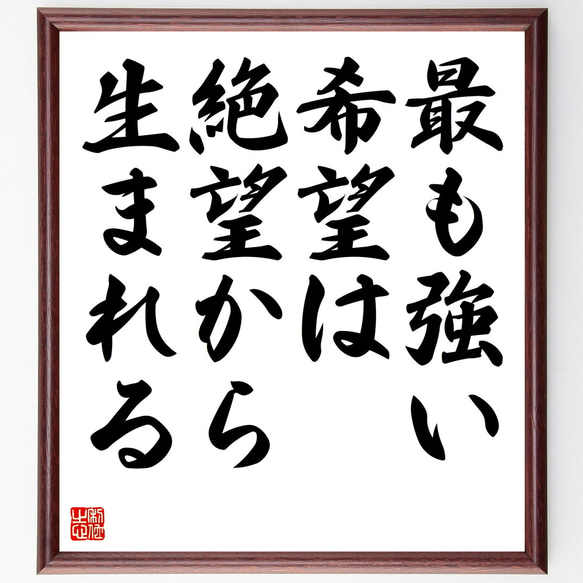 最も強い
希望は
絶望から
生まれる